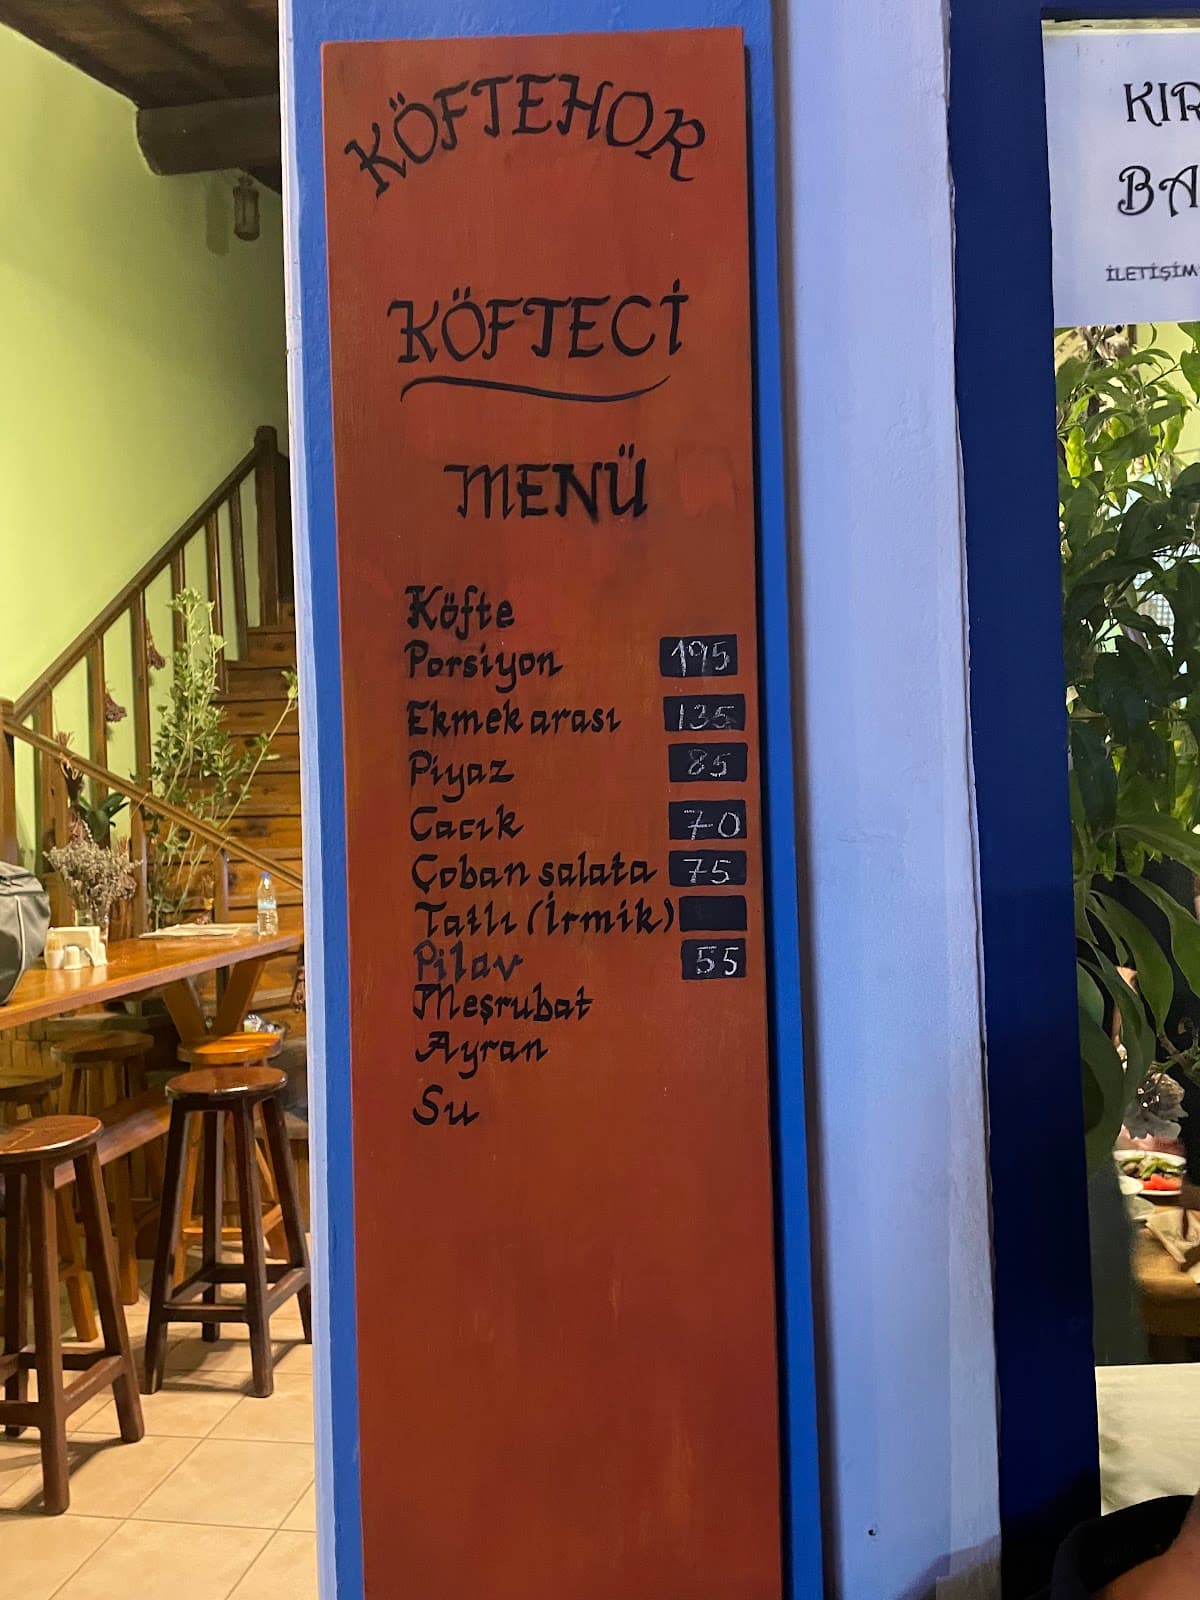 KÖFTEHOR
KÖFTECİ
MENÜ
Köfte
Porsiyon 195
Ekmek arası 135
Piyaz 85
Cacık 70
Çoban salata 75
Tatlı (İrmik)
Pilav 55
Meşrubat
Ayran
Su
KIR
BA
İLETİŞİM